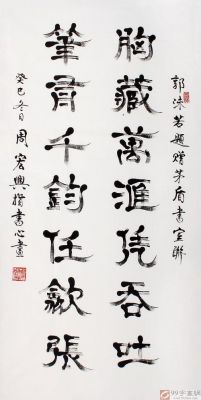 郭沫若题赠茅盾書室聯
胸藏萬滙凭吞吐
筆有千鈞任歙張
癸巳冬日周宏興指書心畫